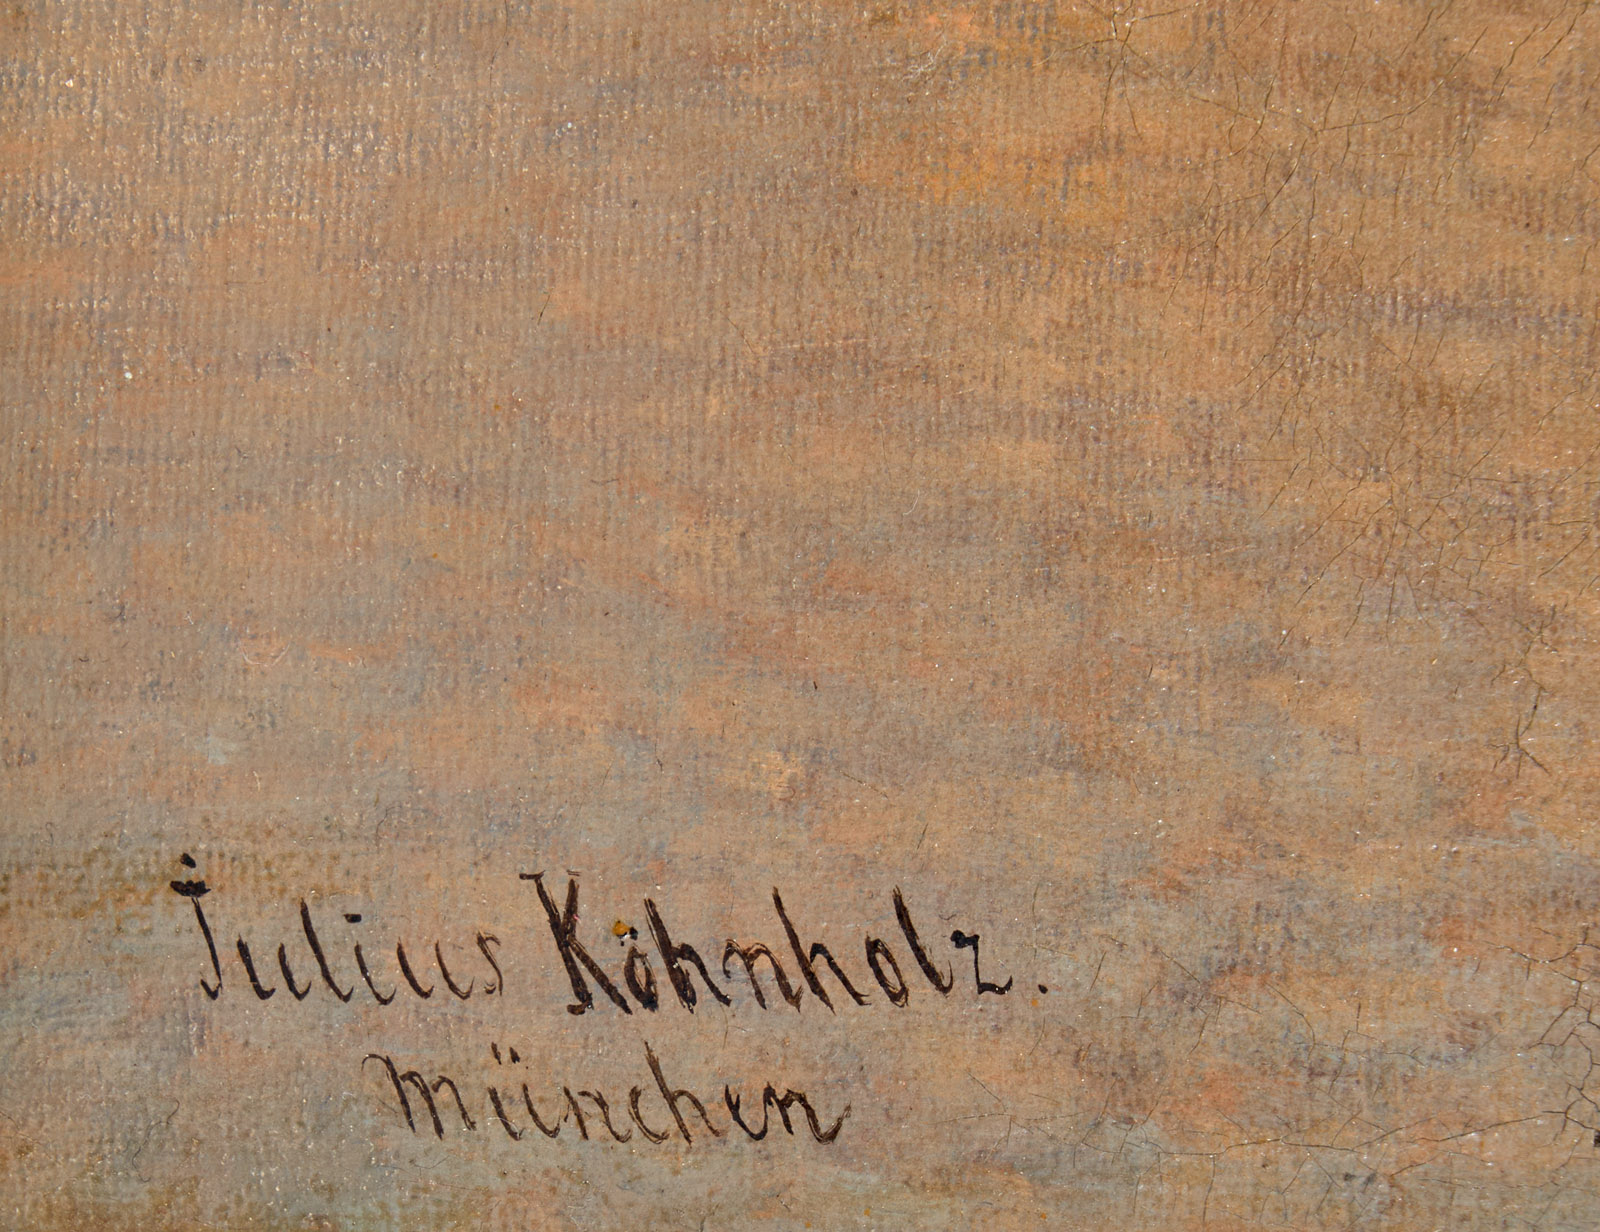 Julius Köhnholz.
München